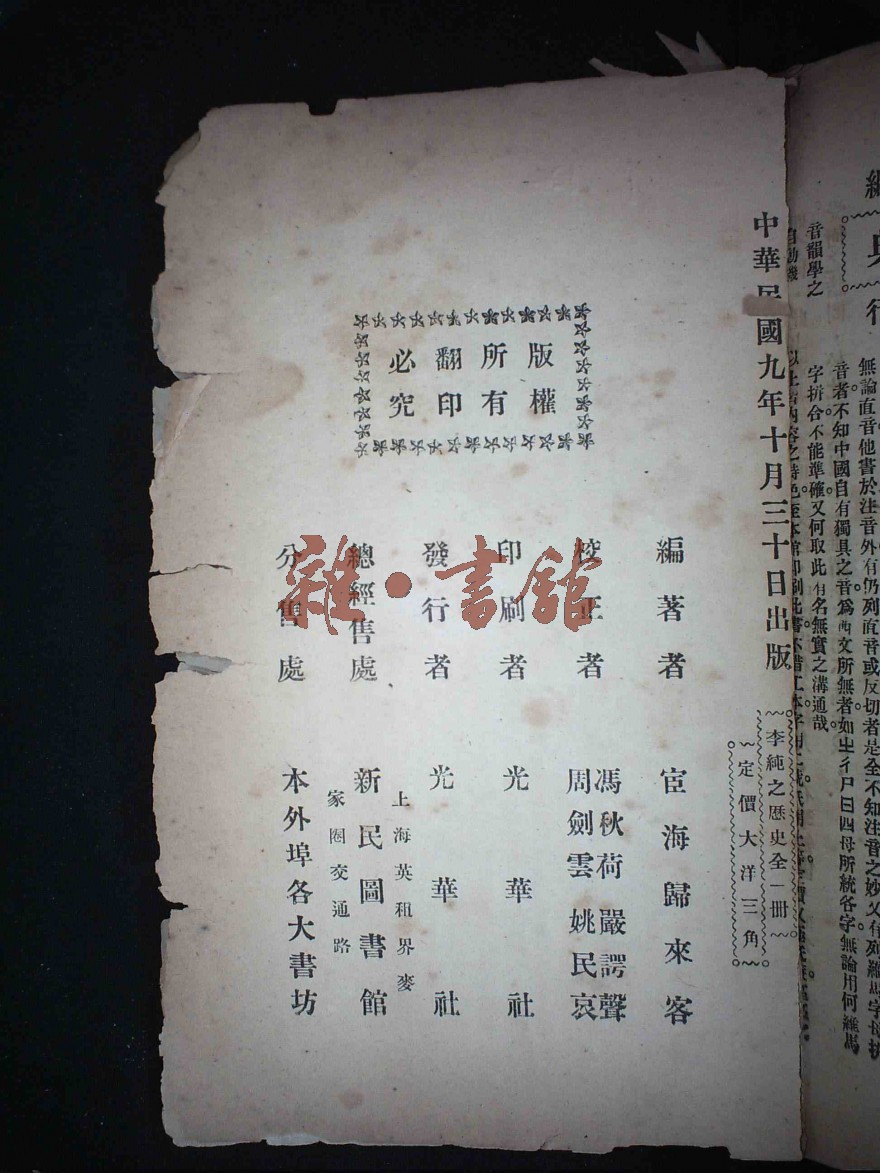 編
典
行
無論直音他書於注音外有仍列直音或反切者是全不知注音之妙又有列羅馬字母拼
音者不知中國自有獨具之音爲西文所無者如ㄓㄔㄕㄖ四母所統各字無論用何羅馬
字拼合不能準確又何取此有名無實之溝通哉
音韻學之
自動機
中華民國九年十月三十日出版
李純之歷史全一冊
定價大洋三角
版權
所有
翻印
必究
編著者 宦海歸來客
校正者 馮秋荷 嚴諤聲
周劍雲 姚民哀
印刷者 光華社
發行者 光華社
總經售處 上海英租界麥
新民圖書館
家圈交通路
分售處 本外埠各大書坊
雜·書館